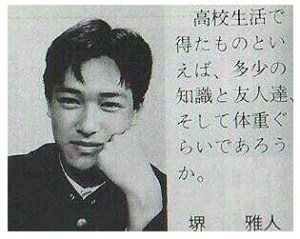 高校生活で
得たものとい
えば、多少の
知識と友人達、
そして体重ぐ
らいであろう
か。
堺　雅人